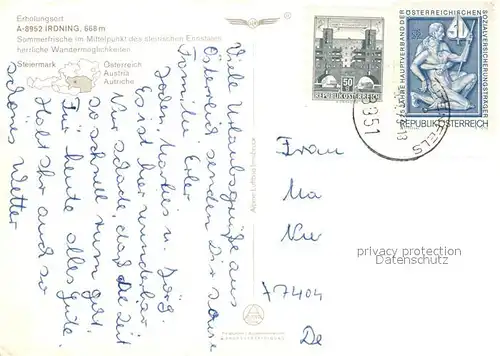 Erholungsort
A-8952 IRDNING, 668 m
Sommerfrische im Mittelpunkt des steirischen Ennstales
herrliche Wandermöglichkeiten
Steiermark
Österreich
Austria
Autriche
Viele Urlaubsgrüße aus
Österreich senden Dir sowie
Familie Erler
Marlies u. Jörg.
Es ist hier wunderbar.
Nur schade, daß die Zeit
so schnell rum geht.
Für heute alles gute.
Habt Ihr auch so
schönes Wetter
Alpine Luftbild Innsbruck
50
REPUBLIK ÖSTERREICH
25 JAHRE HAUPTVERBAND DER ÖSTERREICHISCHEN SOZIALVERSICHERUNGSTRÄGER
S 4
REPUBLIK ÖSTERREICH
8951
Frau
Ma
Neu
A7404
De
privacy protection
Datenschutz